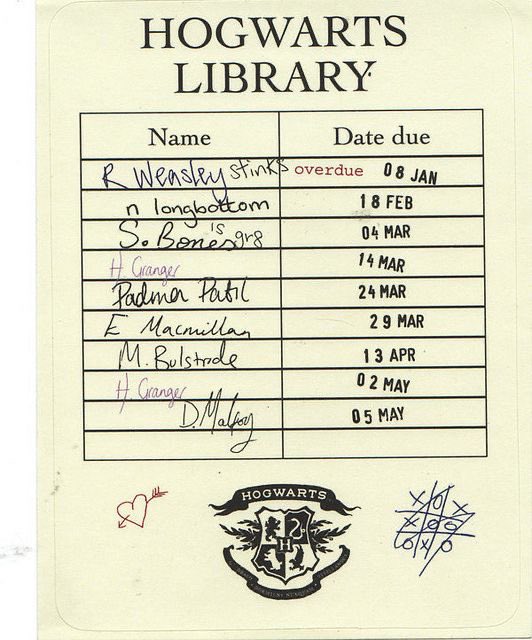 HOGWARTS
LIBRARY
Name Date due
R Weasley stinks overdue 08 JAN
n longbottom 18 FEB
S. Bones is gr8 04 MAR
H. Granger 14 MAR
Padma Patil 24 MAR
E Macmillan 29 MAR
M. Bulstrode 13 APR
H. Granger 02 MAY
D. Malfoy 05 MAY
HOGWARTS
H
X O X
X O O
O X O